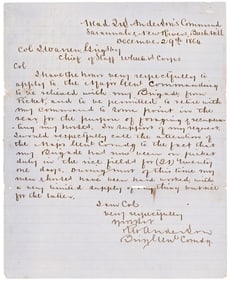 Head Qrs Anderson's Command
Savannah, New River, Buck Hall
December 29th 1864
Col
Chief of Staff Wheeler's Corps
Col
I have the honor very respectfully to
apply to the Major Genl Commanding
to be relieved with my Brigade from
Picket, and to be permitted to retire with
my Command to some point in the
rear for the purpose of foraging
my Horses. In support of my request
I would respectfully call the attention of
the Major Genl Comdg to the fact that
my Brigade has now been on picket
duty in the rice fields for (21) twenty
one days, during most of this time my
men & horses have been hard worked with
a very limited supply of
for the latter.
I am Col
Very respectfully
R H Anderson
Brig Genl Comdg